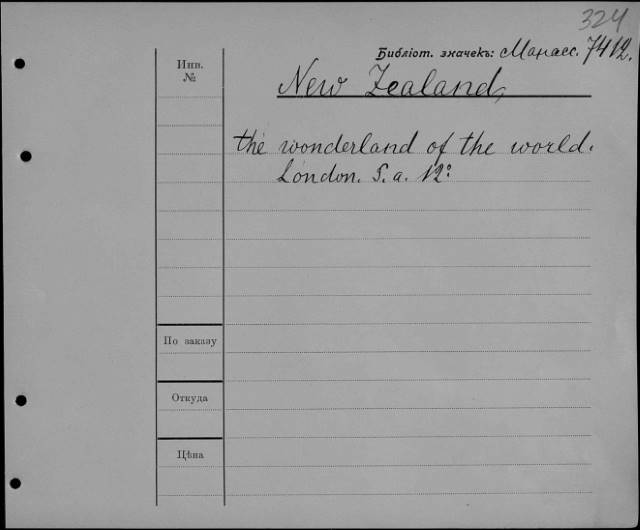 324
Библіот. значекъ: Манасс. 7412.
Инв.
№
New Zealand,
the wonderland of the world.
London. S. a. 12º
По заказу
Откуда
Цѣна